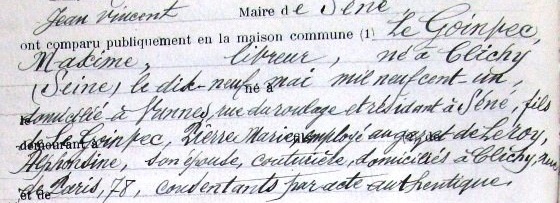 Jean Vincent Maire de Séné
ont comparu publiquement en la maison commune (1) Le Goinpec,
Maxime, libreur, né à Clichy
(Seine) le dix-neuf mai mil neuf cent un,
né à
domicilié à Vannes, rue du roulage et résidant à Séné, fils
le
de Le Goinpec, Pierre Marie, employé au gaz et de Leroy,
demeurant à
Alphonsine, son épouse, couturière, domiciliés à Clichy, rue
de Paris, 78, consentants par acte authentique.
et de